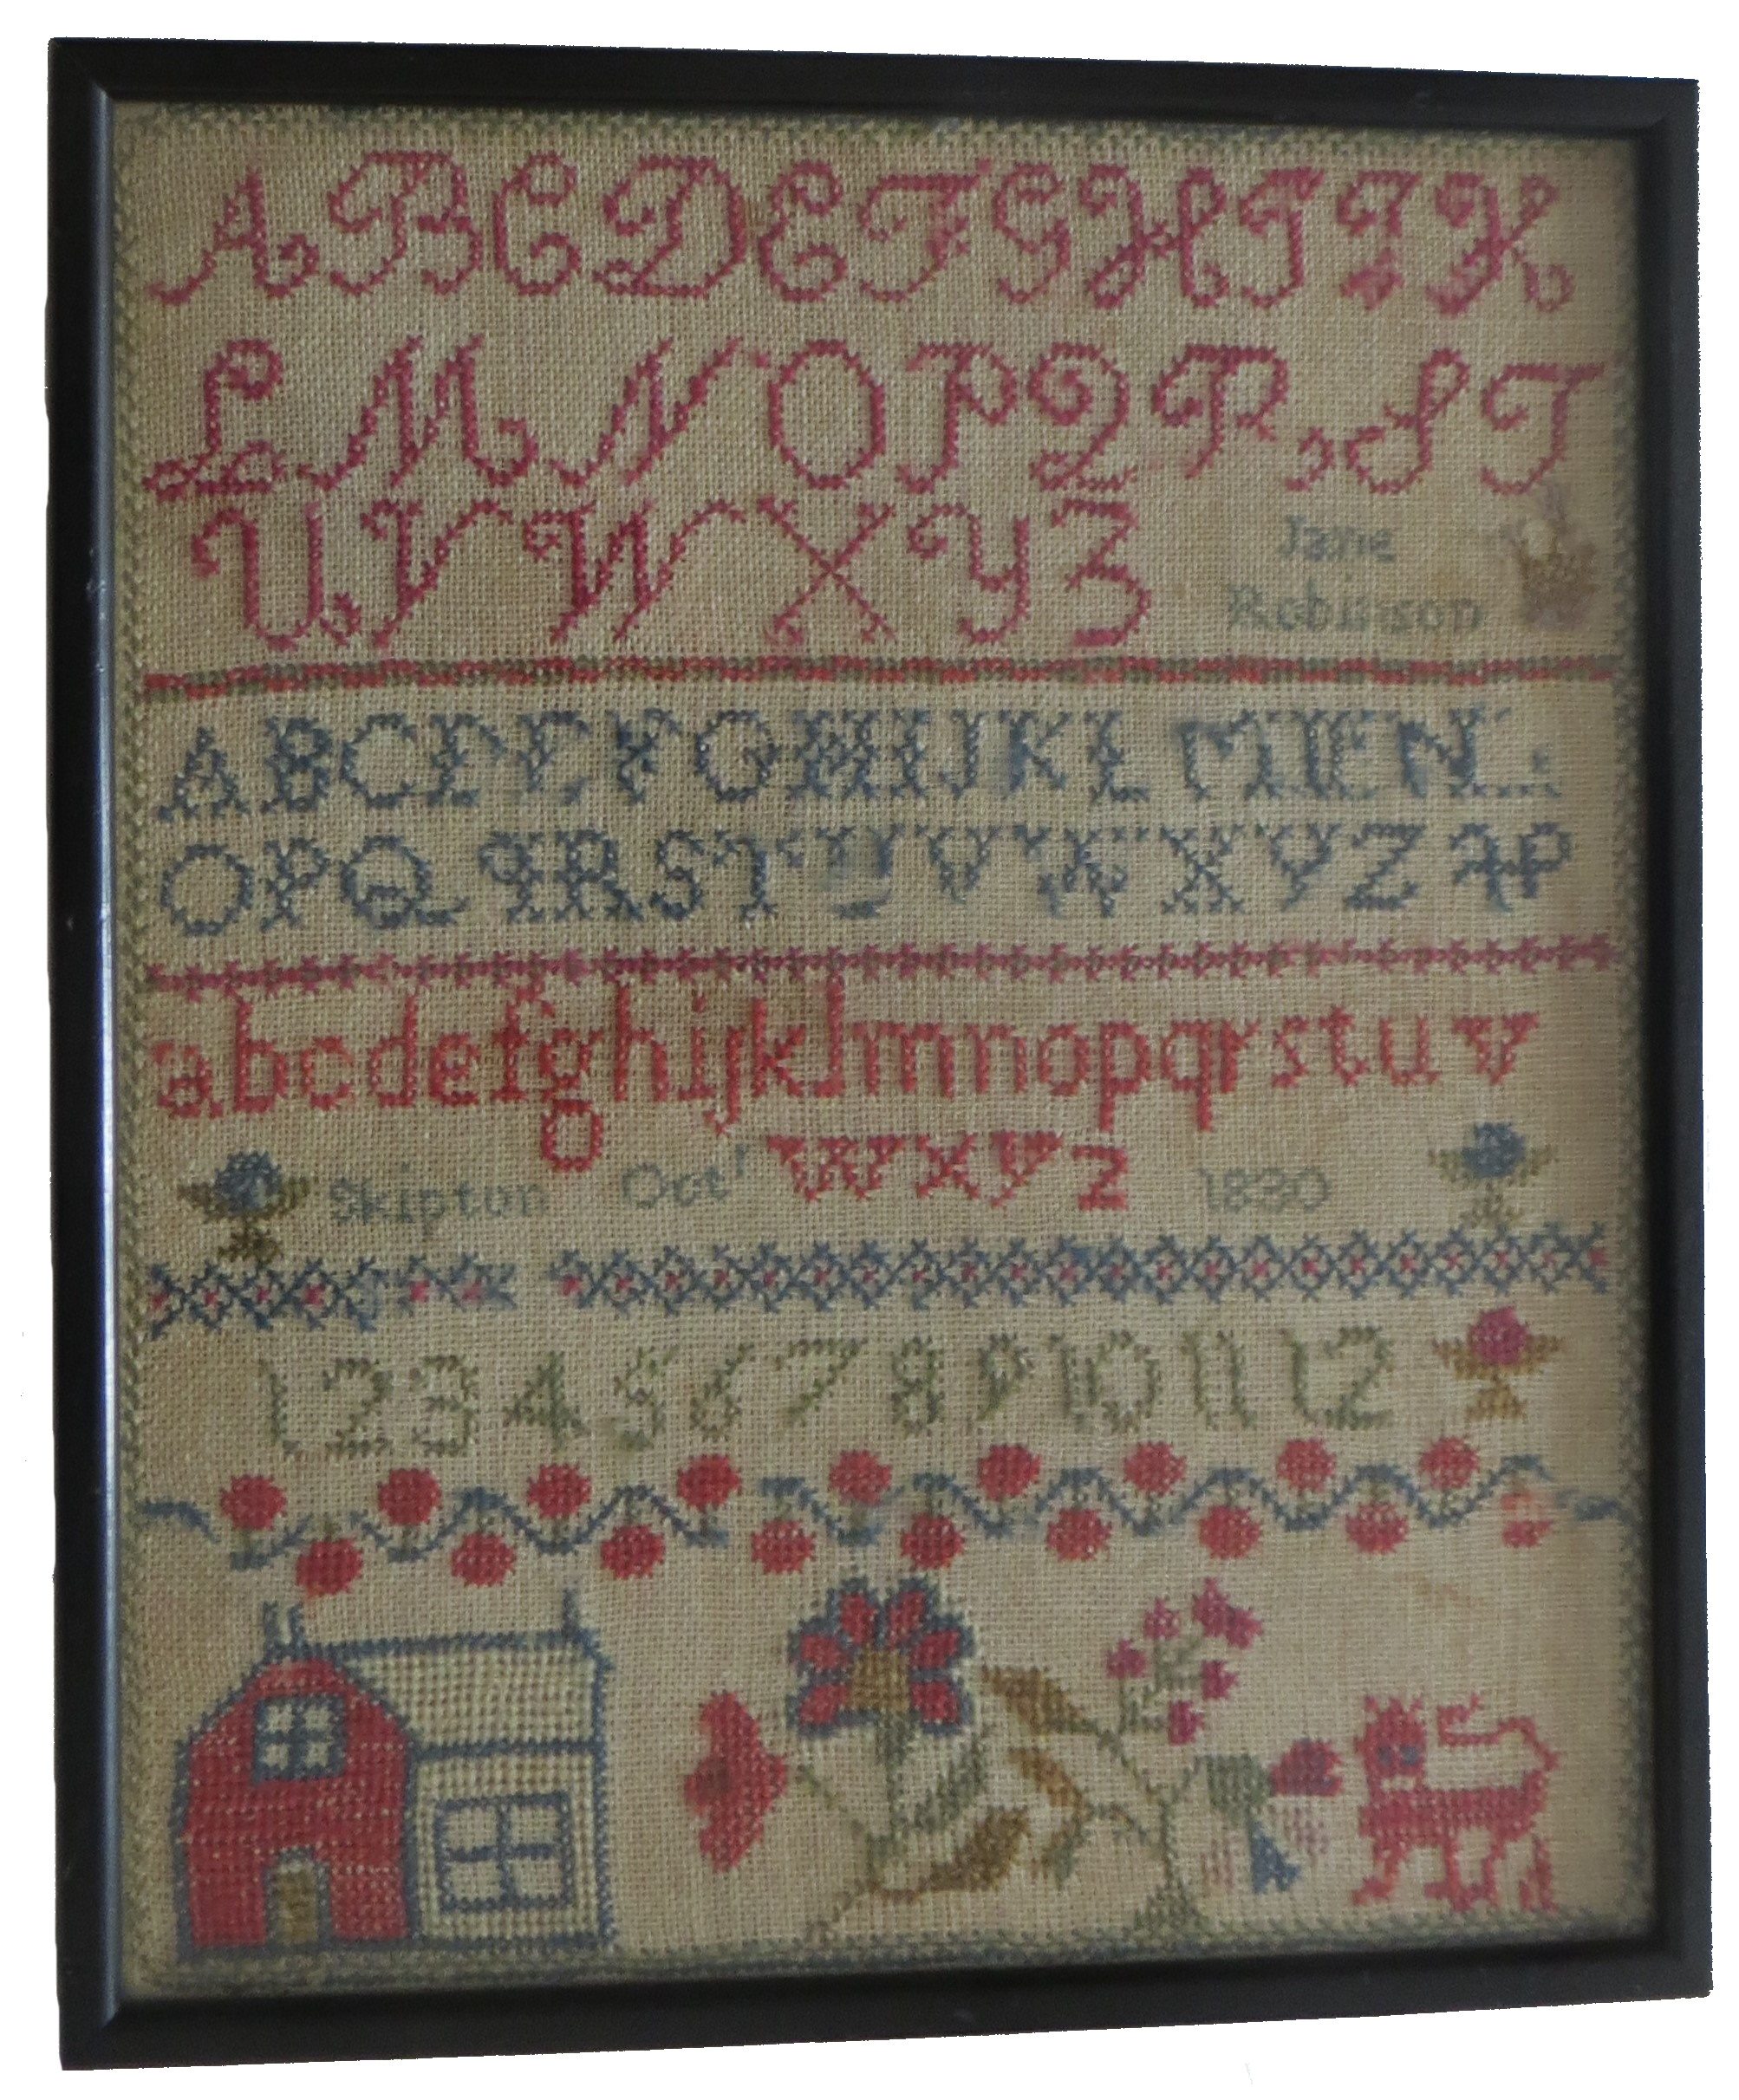 A B C D E F G H I J K
L M N O P Q R S T
U V W X Y Z
Jane
Robinson
A B C D E F G H I J K L M E N
O P Q R S T U V W X Y Z
a b c d e f g h i j k l m n o p q r s t u v
w x y z
Skipton Oct' 1830
1 2 3 4 5 6 7 8 9 10 11 12